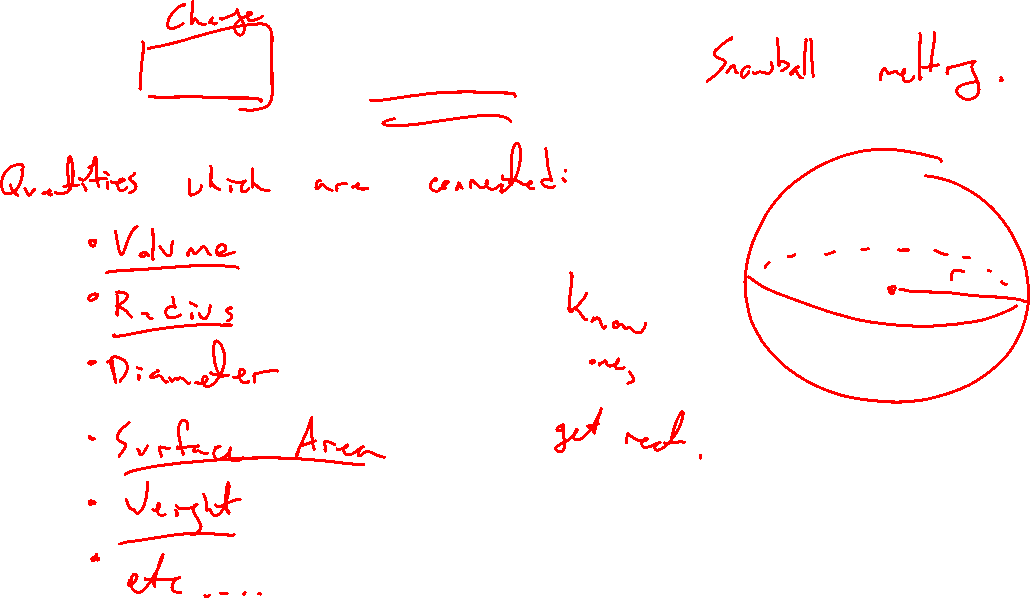 Change
Snowball melting.
Quantities which are connected:
• Volume
• Radius
• Diameter
• Surface Area
• Weight
• etc ....
Know
one,
get rest.
r